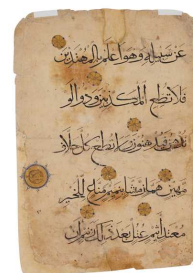 عن سبيله وهو اعلم بالمهتدين
فلا تطع المكذبين ودوا لو
تدهن فيدهنون ولا تطع كل حلاف
مهين هماز مشاء بنميم مناع للخير
معتد اثيم عتل بعد ذلك زنيم ان